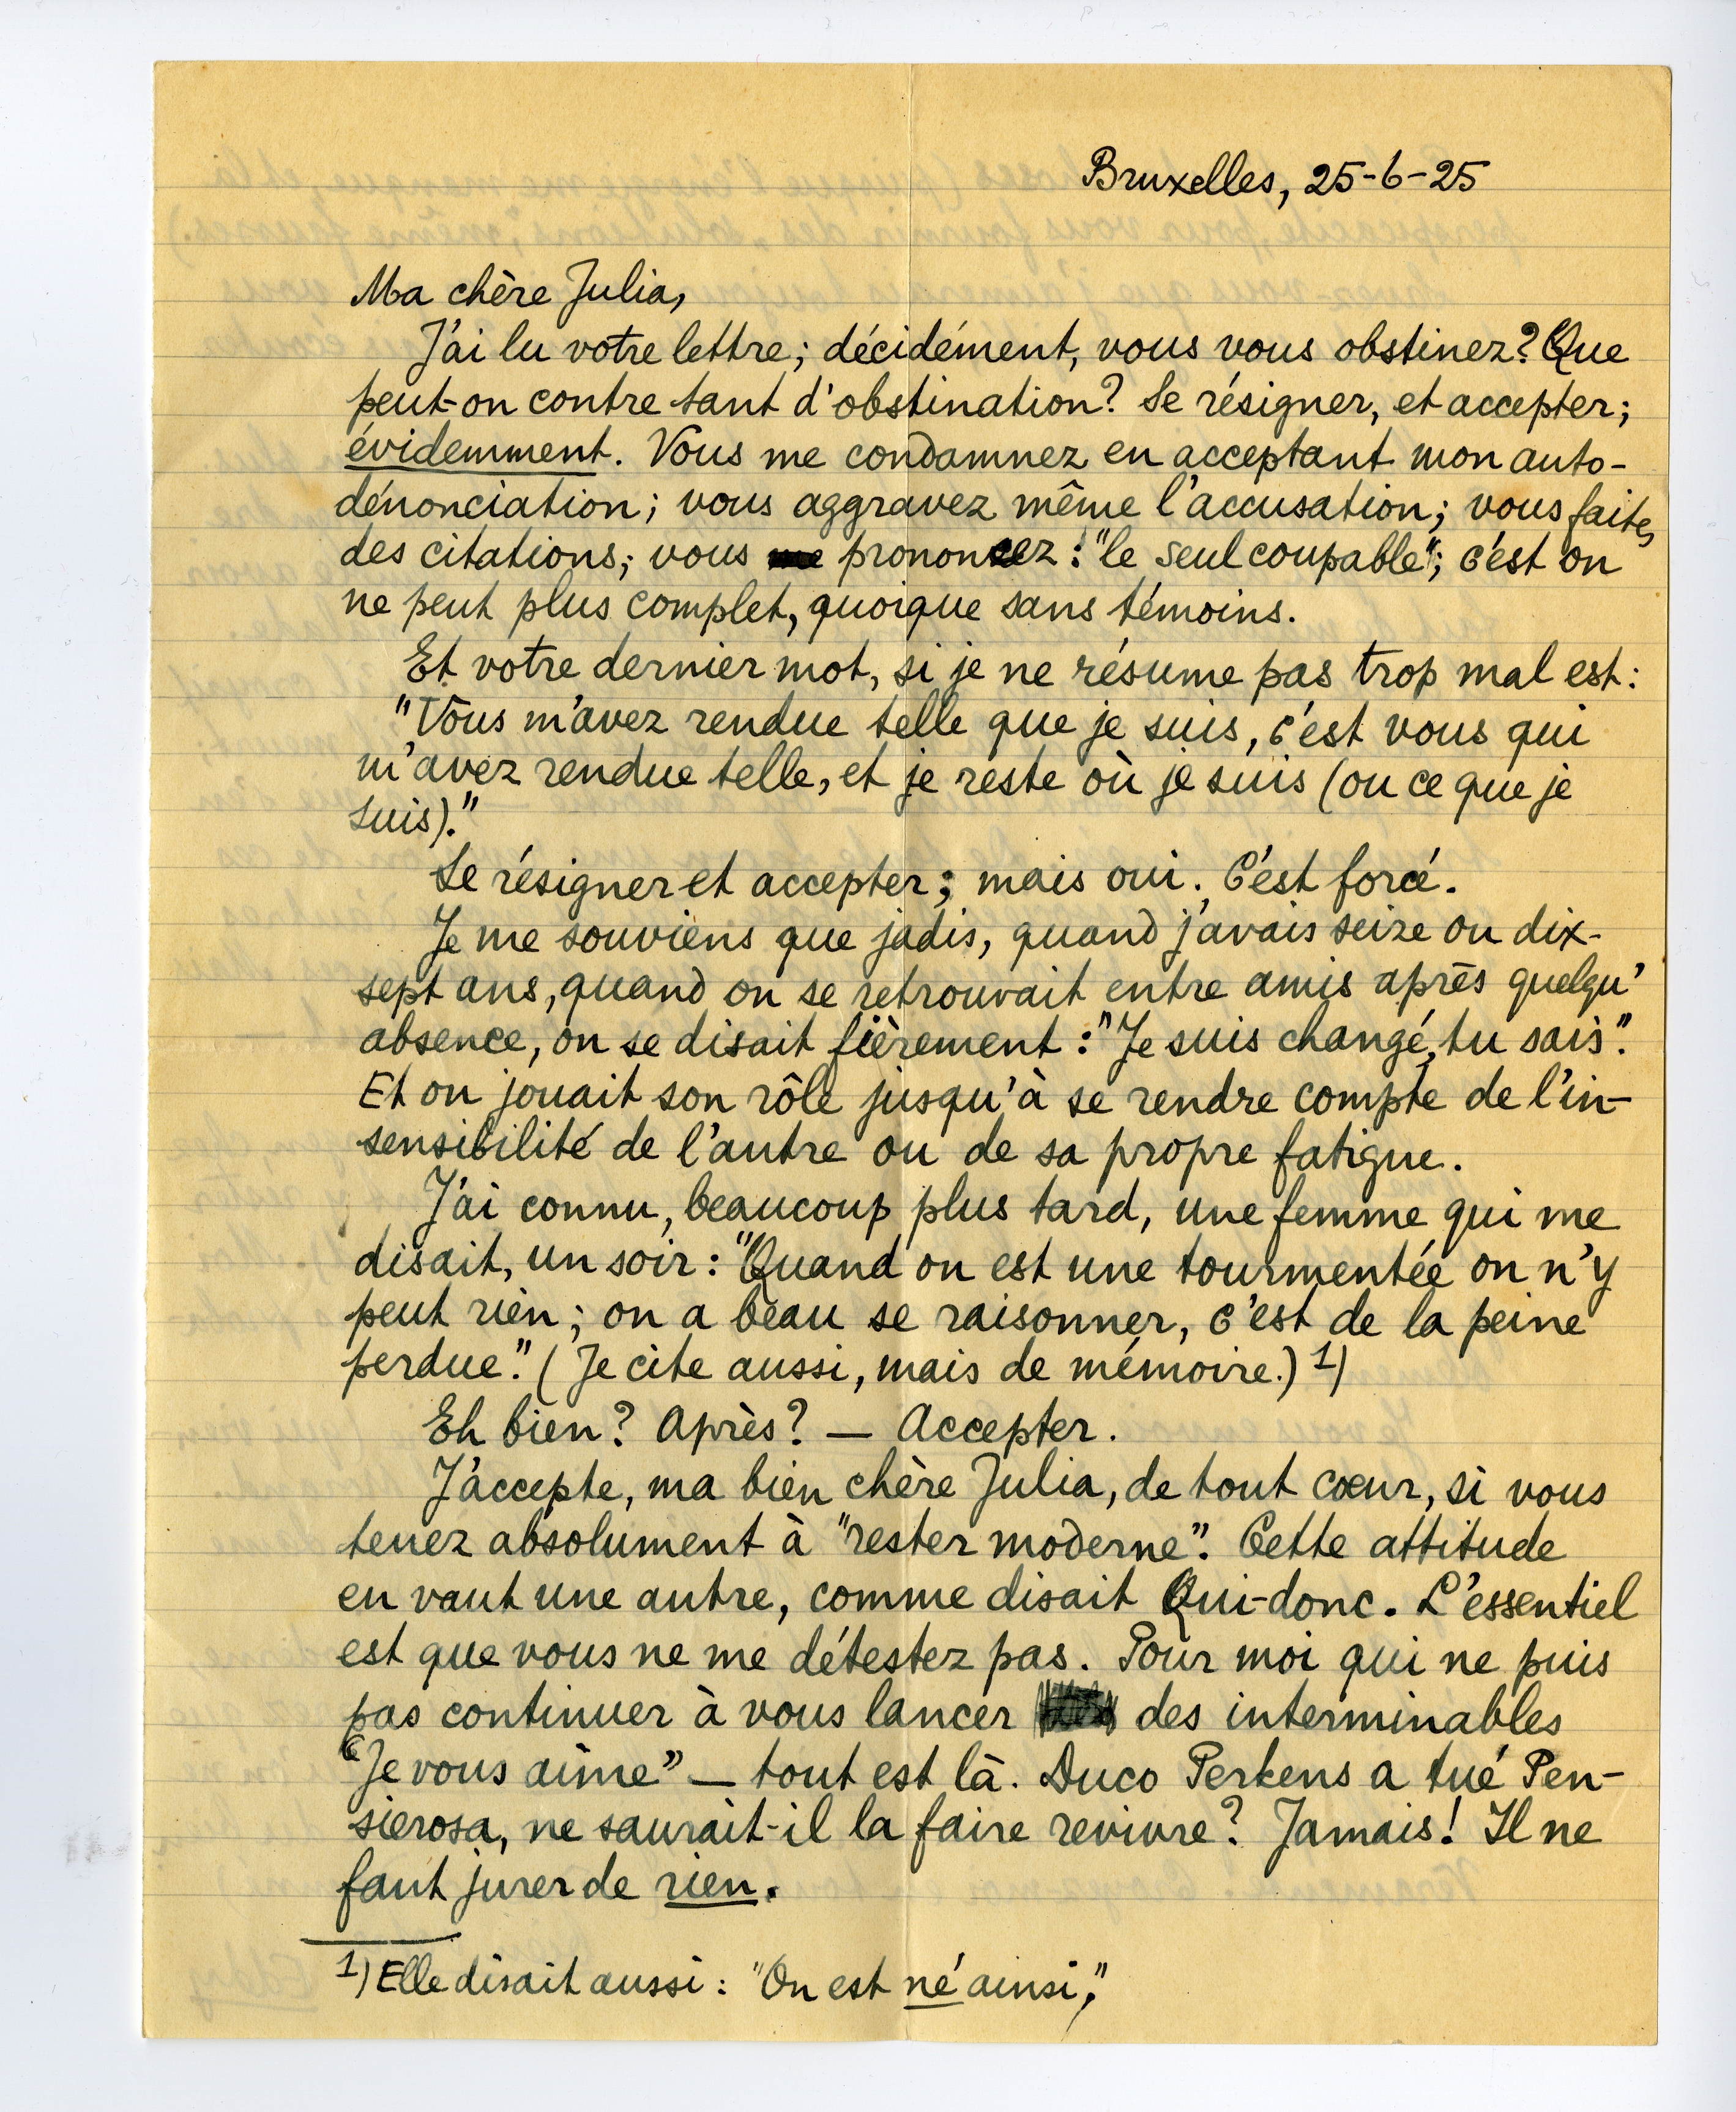 Bruxelles, 25-6-25
Ma chère Julia,
J'ai lu votre lettre; décidément, vous vous obstinez? Que
peut-on contre tant d'obstination? Se résigner, et accepter;
évidemment. Vous me condamnez en acceptant mon auto-
dénonciation; vous aggravez même l'accusation; vous faites
des citations; vous me prononcez: "le seul coupable"; c'est on
ne peut plus complet, quoique sans témoins.
Et votre dernier mot, si je ne résume pas trop mal est:
"Vous m'avez rendue telle que je suis, c'est vous qui
m'avez rendue telle, et je reste où je suis (ou ce que je
suis)."
Se résigner et accepter; mais oui. C'est forcé.
Je me souviens que jadis, quand j'avais seize ou dix-
sept ans, quand on se retrouvait entre amis après quelqu'
absence, on se disait fièrement: "Je suis changé, tu sais".
Et on jouait son rôle jusqu'à se rendre compte de l'in-
sensibilité de l'autre ou de sa propre fatigue.
J'ai connu, beaucoup plus tard, une femme qui me
disait, un soir: "Quand on est une tourmentée on n'y
peut rien; on a beau se raisonner, c'est de la peine
perdue." (Je cite aussi, mais de mémoire.) 1)
Eh bien? Après? — Accepter.
J'accepte, ma bien chère Julia, de tout cœur, si vous
tenez absolument à "rester moderne". Cette attitude
en vaut une autre, comme disait Qui-donc. L'essentiel
est que vous ne me détestez pas. Pour moi qui ne puis
pas continuer à vous lancer des interminables
"Je vous aime" — tout est là. Duco Perkens a tué Pen-
sierosa, ne saurait-il la faire revivre? Jamais! Il ne
faut jurer de rien.
1) Elle disait aussi: "On est né ainsi,"